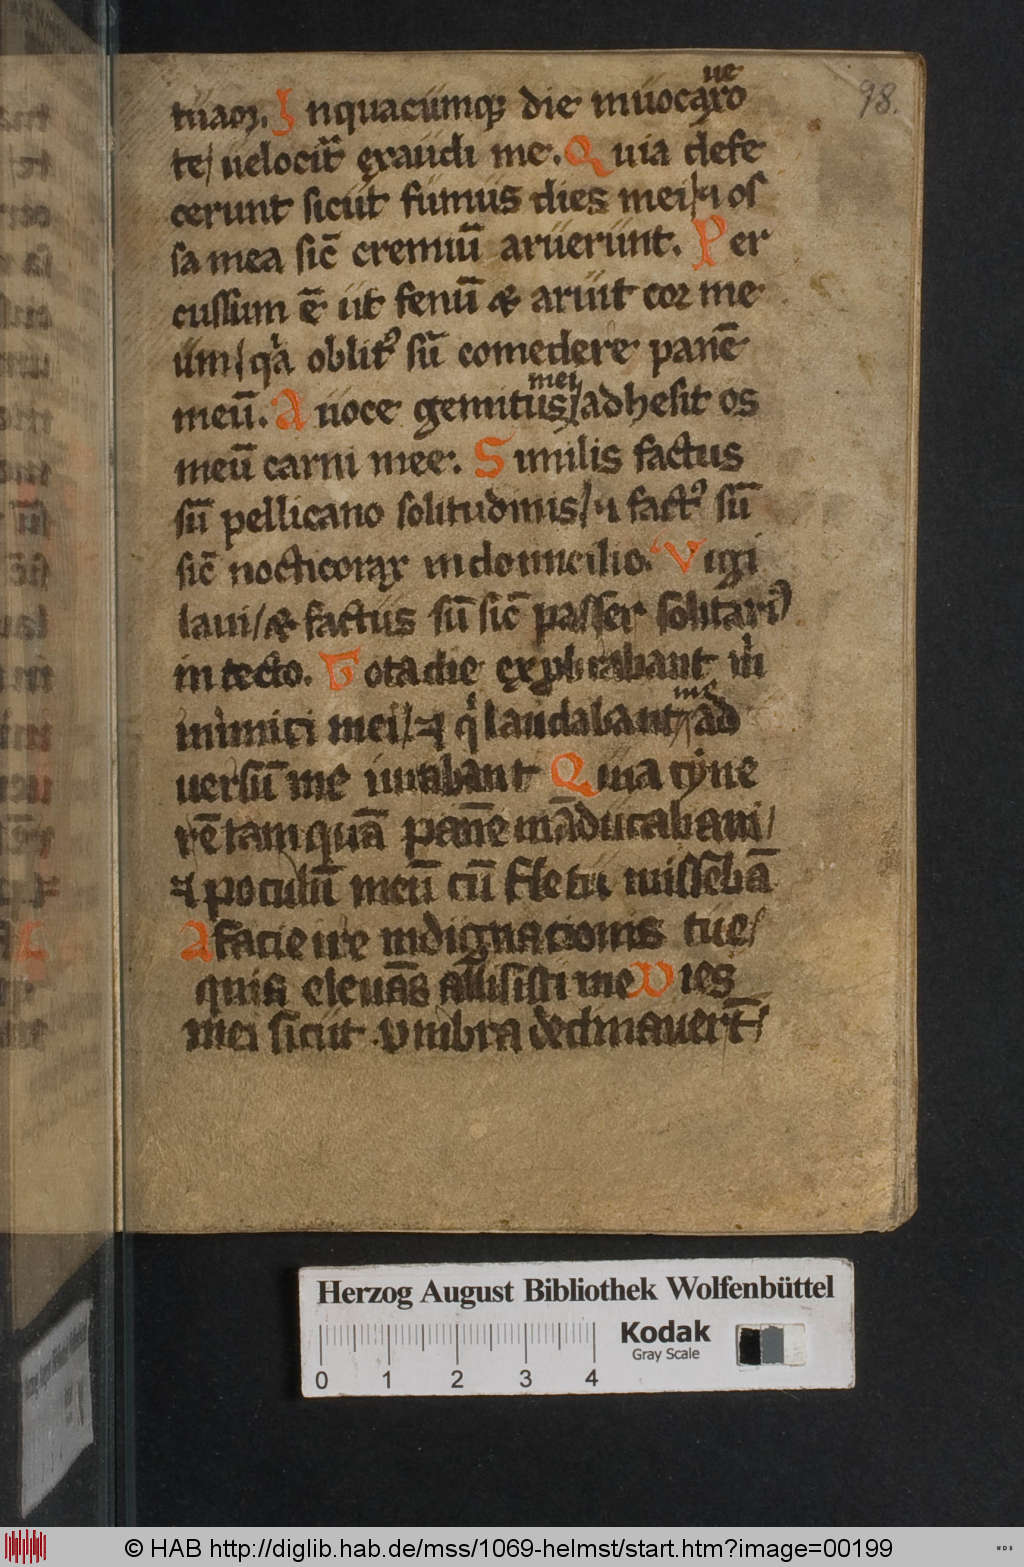 ue
98.
tuam. Inquacumq; die inuocaro
te/ uelocit᷑ exaudi me. Quia defe
cerunt sicut fumus dies mei/ ⁊ os
sa mea sic̄ cremiū aruerunt. Per
cussum ē ut fenū & aruit cor me
um/ qͥa oblitꝰ sū comedere panē
mei
meū. A uoce gemitus/ adhesit os
meū carni mee. Similis factus
sū pellicano solitudinis/ ⁊ factꝰ sū
sic̄ nocticorax in domicilio. Vigi
laui/ & factus sū sic̄ passer solitariꝰ
in tecto. Tota die exprobrabant m̍
me
inimici mei/ ⁊ qͥ laudabant ad
uersū me iurabant Quia cyne
rē tam quā panē māducabam/
⁊ poculū meū cū fletu missebā
A facie ire indignacionis tue/
quia eleuās allisisti me Dies
mei sicut vmbra declinauert̄/
Herzog August Bibliothek Wolfenbüttel
Kodak
Gray Scale
0 1 2 3 4
© HAB http://diglib.hab.de/mss/1069-helmst/start.htm?image=00199